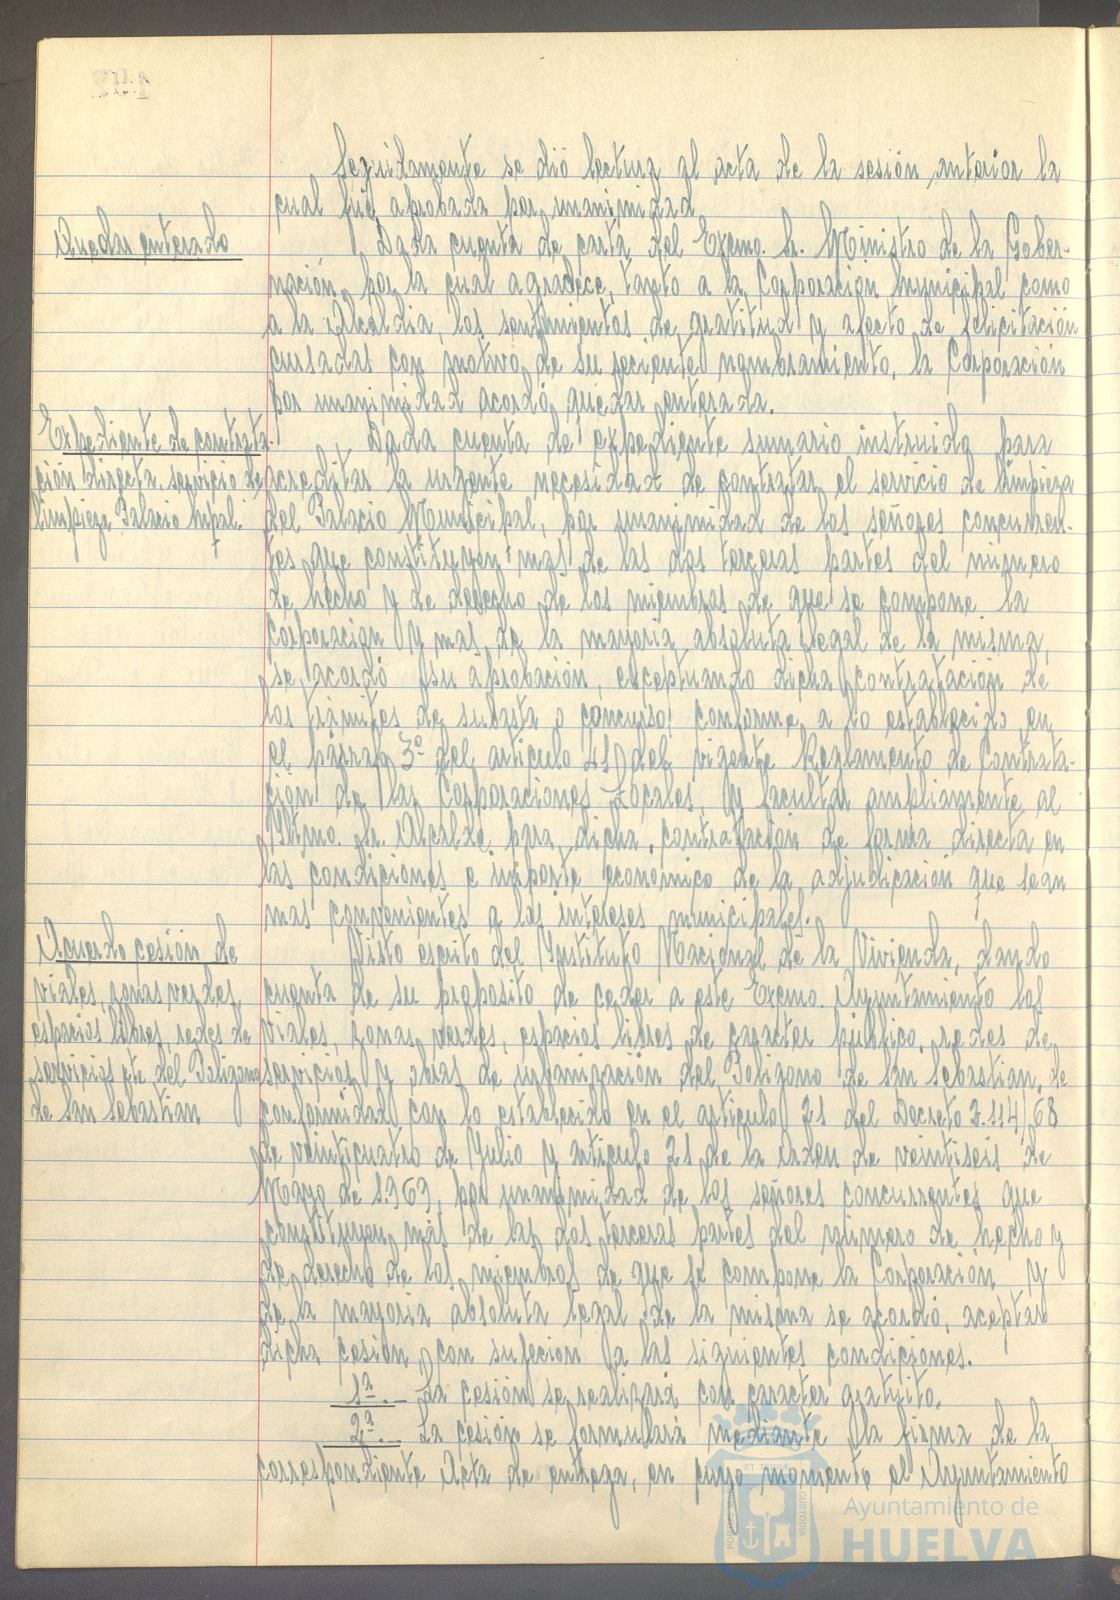 Seguidamente se dió lectura al acta de la sesión anterior la
cual fué aprobada por unanimidad
Quedar enterado
Dada cuenta de carta del Excmo. Sr. Ministro de la Gober-
nación, por la cual agradece, tanto a la Corporación Municipal como
a la Alcaldia, los sentimientos de gratitud y afecto de felicitación
cursadas con motivo de su reciente nombramiento, la Corporación
por unanimidad acordó quedar enterada.
Expediente de contrata-
ción directa, servicio de
limpieza Palacio Mpal.
Dada cuenta de expediente sumario instruido para
acreditar la urgente necesidad de contratar el servicio de limpieza
del Palacio Municipal, por unanimidad de los señores concurren-
tes que constituyen mas de las dos terceras partes del número
de hecho y de derecho de los miembros de que se compone la
Corporación y mas de la mayoria absoluta legal de la misma,
se acordó su aprobación, exceptuando dicha contratación de
los trámites de subasta o concurso conforme a lo establecido en
el párrafo 3º del articulo 41 del vigente Reglamento de Contrata-
ción de las Corporaciones Locales, y facultar ampliamente al
Iltmo. Sr. Alcalde para dicha contratación de forma directa en
las condiciones e importe económico de la adjudicación que sean
mas convenientes a los intereses municipales.
Acuerdo cesión de
viales, zonas verdes,
espacios libres, redes de
servicios etc del Poligono
de San Sebastian
Visto escrito del Instituto Nacional de la Vivienda, dando
cuenta de su proposito de ceder a este Excmo. Ayuntamiento los
viales, zonas verdes, espacios libres de caracter público, redes de
servicios y obras de urbanización del Poligono de San Sebastian, de
conformidad con lo establecido en el articulo 31 del Decreto 2.114/68
de veinticuatro de Julio y articulo 21 de la orden de veintiseis de
Mayo de 1.969, por unanimidad de los señores concurrentes que
constituyen más de las dos terceras partes del número de hecho y
de derecho de los miembros de que se compone la Corporación y
de la mayoria absoluta legal de la misma se acordó, aceptar
dicha cesión con sujecion a las siguientes condiciones.
1ª.- La cesión se realizará con caracter gratuito.
2ª.- La cesión se formulará mediante la firma de la
correspondiente Acta de entrega, en cuyo momento el Ayuntamiento
Ayuntamiento de
HUELVA